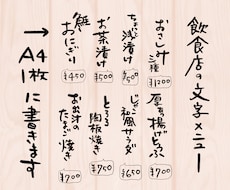 飲食店の文字メニュー
おさしみ
三種
¥1200
浅漬け
¥500
お茶漬け
¥500
鮭
おにぎり
¥450
厚揚げどうふ
¥700
じゃこ
和風サラダ
¥650
とろろ
陶板焼き
¥750
お出汁の
たまご焼き
¥700
→A4 1枚に書きます